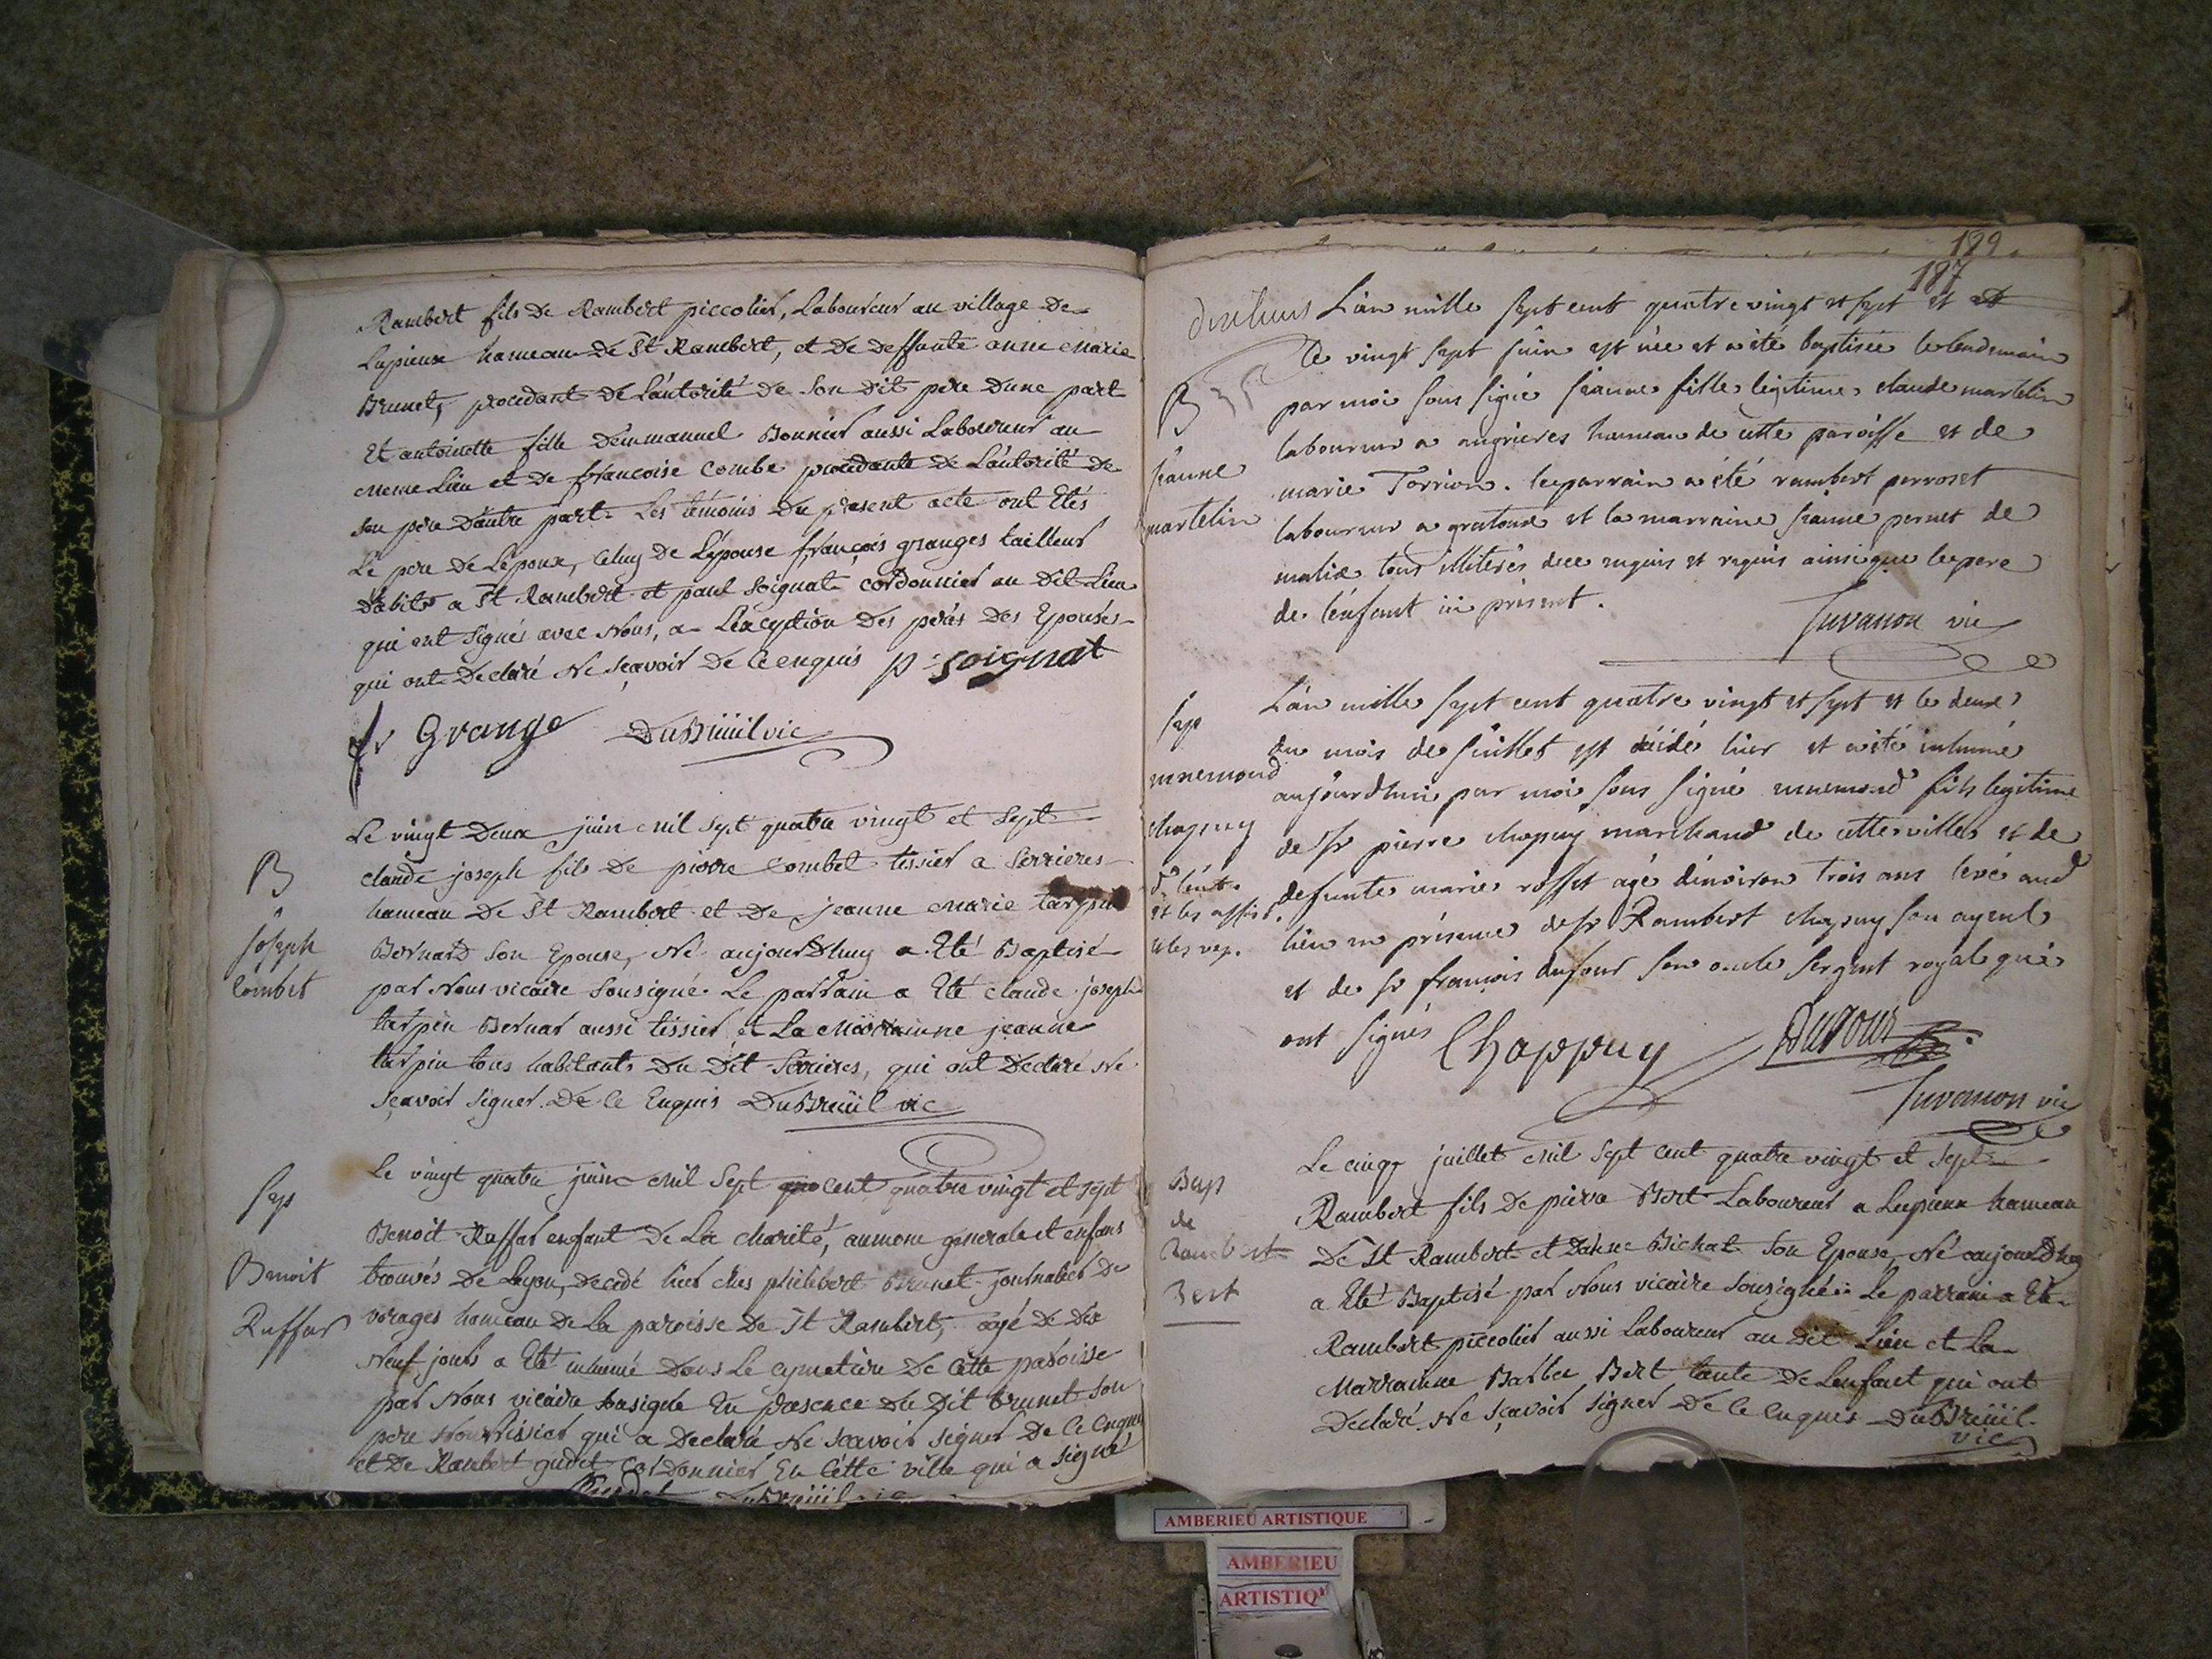 Rambert fils De Rambert piccolier, Laboureur au village De
Lupieux hameau De St Rambert, et De deffunte anne Marie
Brunet, procedant De L'autorité de Son Dit pere d'une part
Et antoinette fille D'emmanuel Bonnier aussi Laboureur au
meme Lieu et De francoise Combe procedante de L'autorité De
Son pere D'autre part. Les temoins Du present acte ont Etés
Le pere De Lepoux, Celuy de L'epouse françois granges tailleur
habit a St Rambert et paul Soignat cordonnier au Dit Lieu
qui ont Signés avec Nous, a L'exception Des peres Des Epouses
qui ont Declaré Ne Sçavoir De Ce enquis p. soignat
fr Grange DuBreüil vic
Le vingt Deux juin mil Sept quatre vingt et Sept
B
claude joseph fils De pierre Combet tissier a Serrieres
hameau De St Rambert et De jeanne Marie tarpin
joseph
Bernard Son Epouse, Né aujourdhuy a Eté Baptisé
Combet
par Nous vicaire Sousigné. Le parrain a Eté claude joseph
tarpin Bernar aussi tissier et La Marrainne jeanne
tarpin tous habitants Du Dit Serrieres, qui ont Declaré Ne
Sçavoir Signer De Ce Enquis DuBreüil vic
Le vingt quatre juin mil Sept cent quatre vingt et sept
Sep
Benoit Ruffar enfant De La charité, aumone generale et enfans
Benoit
trouvés De Lyon, decedé hier ches philibert Brunet journalier De
Ruffar
vorages hameau De La paroisse De St Rambert, agé De Dix
Neuf jours a Eté inhumé Dans Le cymetiere De Cette paroisse
par Nous vicaire Sousigné En presence Du Dit brunet Son
pere Nourrissier qui a Declaré Ne Scavoir Signer De Ce Enquis
et De Rambert gudet Cordonnier En Cette ville qui a Signé
DuBreüil vic
189
187
L'an mille sept cent quatre vingt et sept et
le vingt sept juin est née et a été baptisée le lendemain
B
par moi sous signé jeanne fille legitime claude martelin
laboureur a angrieres hameau de cette paroisse et de
jeanne
marie Torrion. le parrain a été rambert perroset
martelin
laboureur a gratoux et la marraine jeanne pernet de
malix tous illiterés dece enquis et requis ainsi que le pere
de l'enfant ici présent.
Juvanon vic
L'an mille sept cent quatre vingt et sept et le deux
Sep
du mois de juillet est décédé hier et a été inhumé
ennemond
aujourdhui par moi sous signé ennemond fils legitime
chapuy
de sr pierre chapuy marchand de cette ville et de
defunte marie rosset agé d'environ trois ans levé aud
et les assist.
lieu en présence de sr Rambert chapuy son ayeul
et les vep.
et de sr françois dufour son oncle sergent royal qui
ont signés Chappuy Dufour
Juvanon vic
Le cinq juillet mil Sept cent quatre vingt et Sept
Bap
Rambert fils De pierre Bert Laboureur a Lupieux hameau
de
De St Rambert et D'anne Bichat Son Epouse, Né aujourdhuy
Rambert
a Eté Baptisé par Nous vicaire Sousigné. Le parrain a Eté
Bert
Rambert piccolier aussi Laboureur au Dit Lieu et La
Marrainne Barbe Bert tante De Lenfant qui ont
Declaré Ne Sçavoir Signer De Ce Enquis DuBreüil
vic
AMBERIEU ARTISTIQUE
AMBERIEU
ARTISTIQ